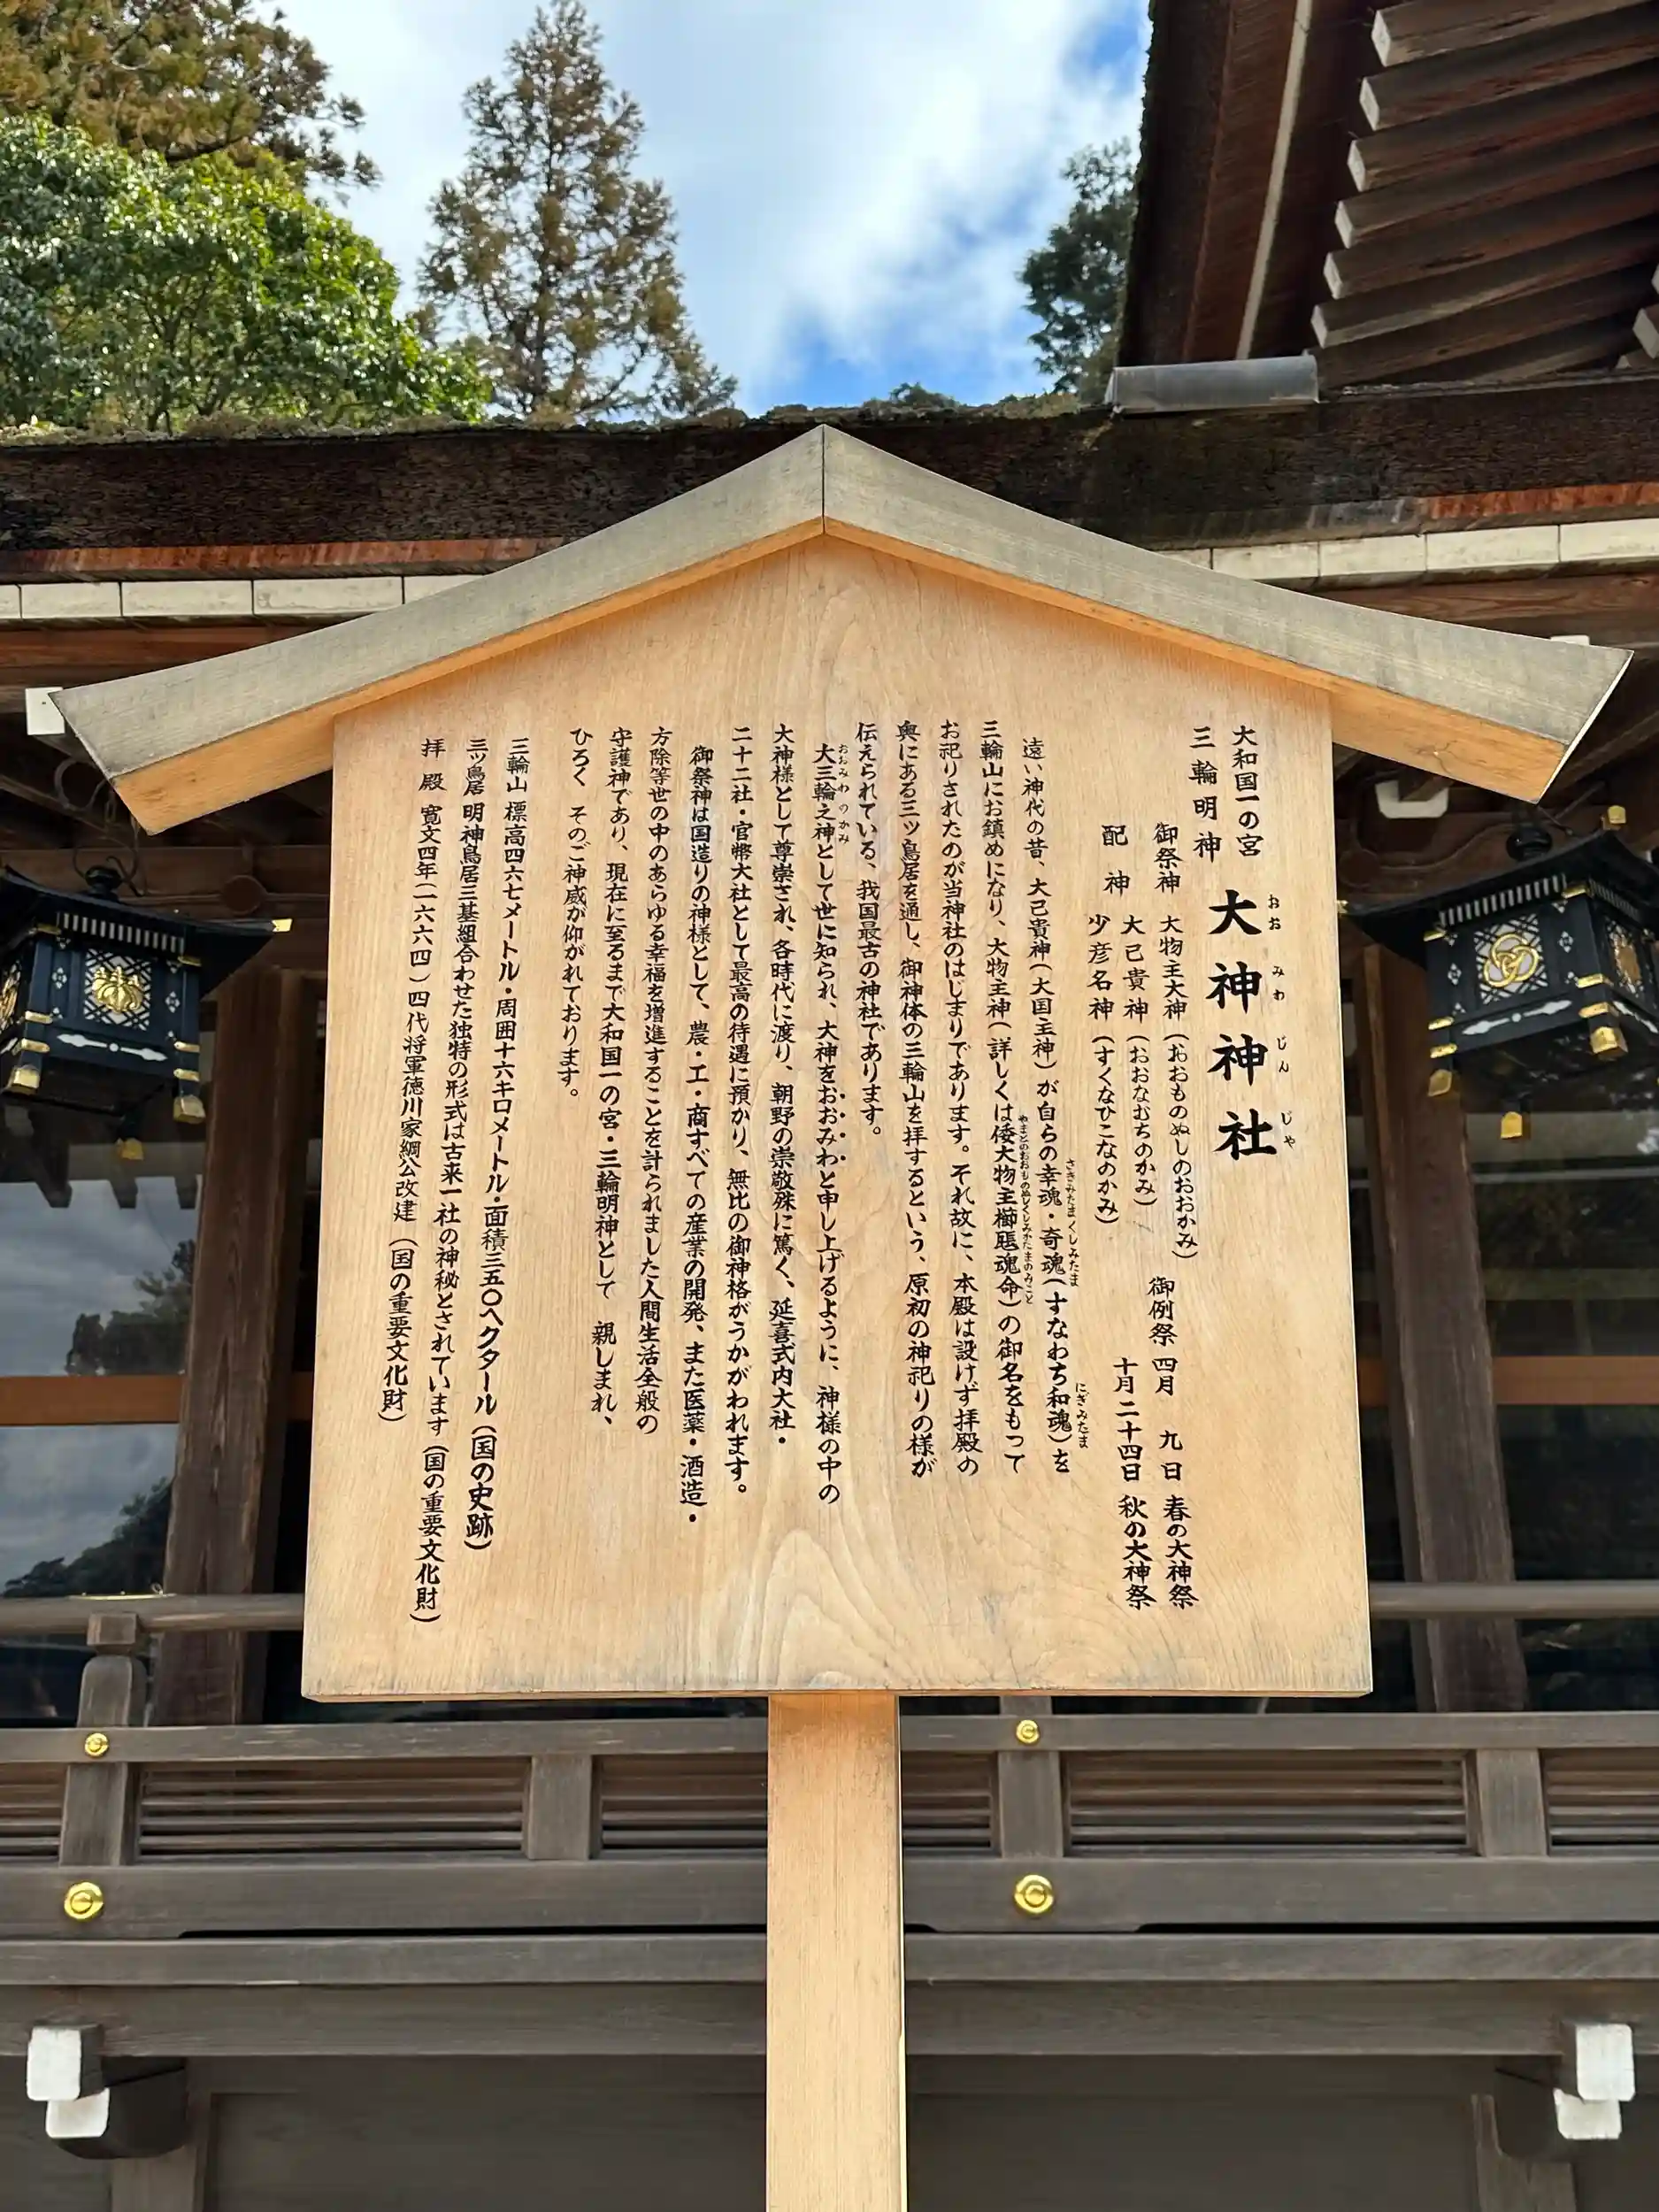 大和国一の宮
三輪明神
大神神社
おお みわ じん じゃ
御祭神 大物主大神(おおものぬしのおおかみ)
大己貴神(おおなむちのかみ)
配神 少彦名神(すくなひこなのかみ)
御例祭 四月 九日 春の大神祭
十月二十四日 秋の大神祭
遠い神代の昔、大己貴神(大国主神)が自らの幸魂・奇魂(すなわち和魂)を
さきみたま くしみたま にぎみたま
三輪山にお鎮めになり、大物主神(詳しくは倭大物主櫛𤭖魂命)の御名をもって
やまとのおおものぬしくしみかたまのみこと
お祀りされたのが当神社のはじまりであります。それ故に、本殿は設けず拝殿の
奥にある三ツ鳥居を通し、御神体の三輪山を拝するという、原初の神祀りの様が
伝えられている、我国最古の神社であります。
大三輪之神として世に知られ、大神をおおみわと申し上げるように、神様の中の
おおみわ のかみ
大神様として尊崇され、各時代に渡り、朝野の崇敬殊に篤く、延喜式内大社・
二十二社・官幣大社として最高の待遇に預かり、無比の御神格がうかがわれます。
御祭神は国造りの神様として、農・工・商すべての産業の開発、また医薬・酒造・
方除等世の中のあらゆる幸福を増進することを計られました人間生活全般の
守護神であり、現在に至るまで大和国一の宮・三輪明神として 親しまれ、
ひろく そのご神威が仰がれております。
三輪山 標高四六七メートル・周囲十六キロメートル・面積三五〇ヘクタール(国の史跡)
三ツ鳥居 明神鳥居三基組合わせた独特の形式は古来一社の神秘とされています(国の重要文化財)
拝殿 寛文四年(一六六四)四代将軍徳川家綱公改建(国の重要文化財)